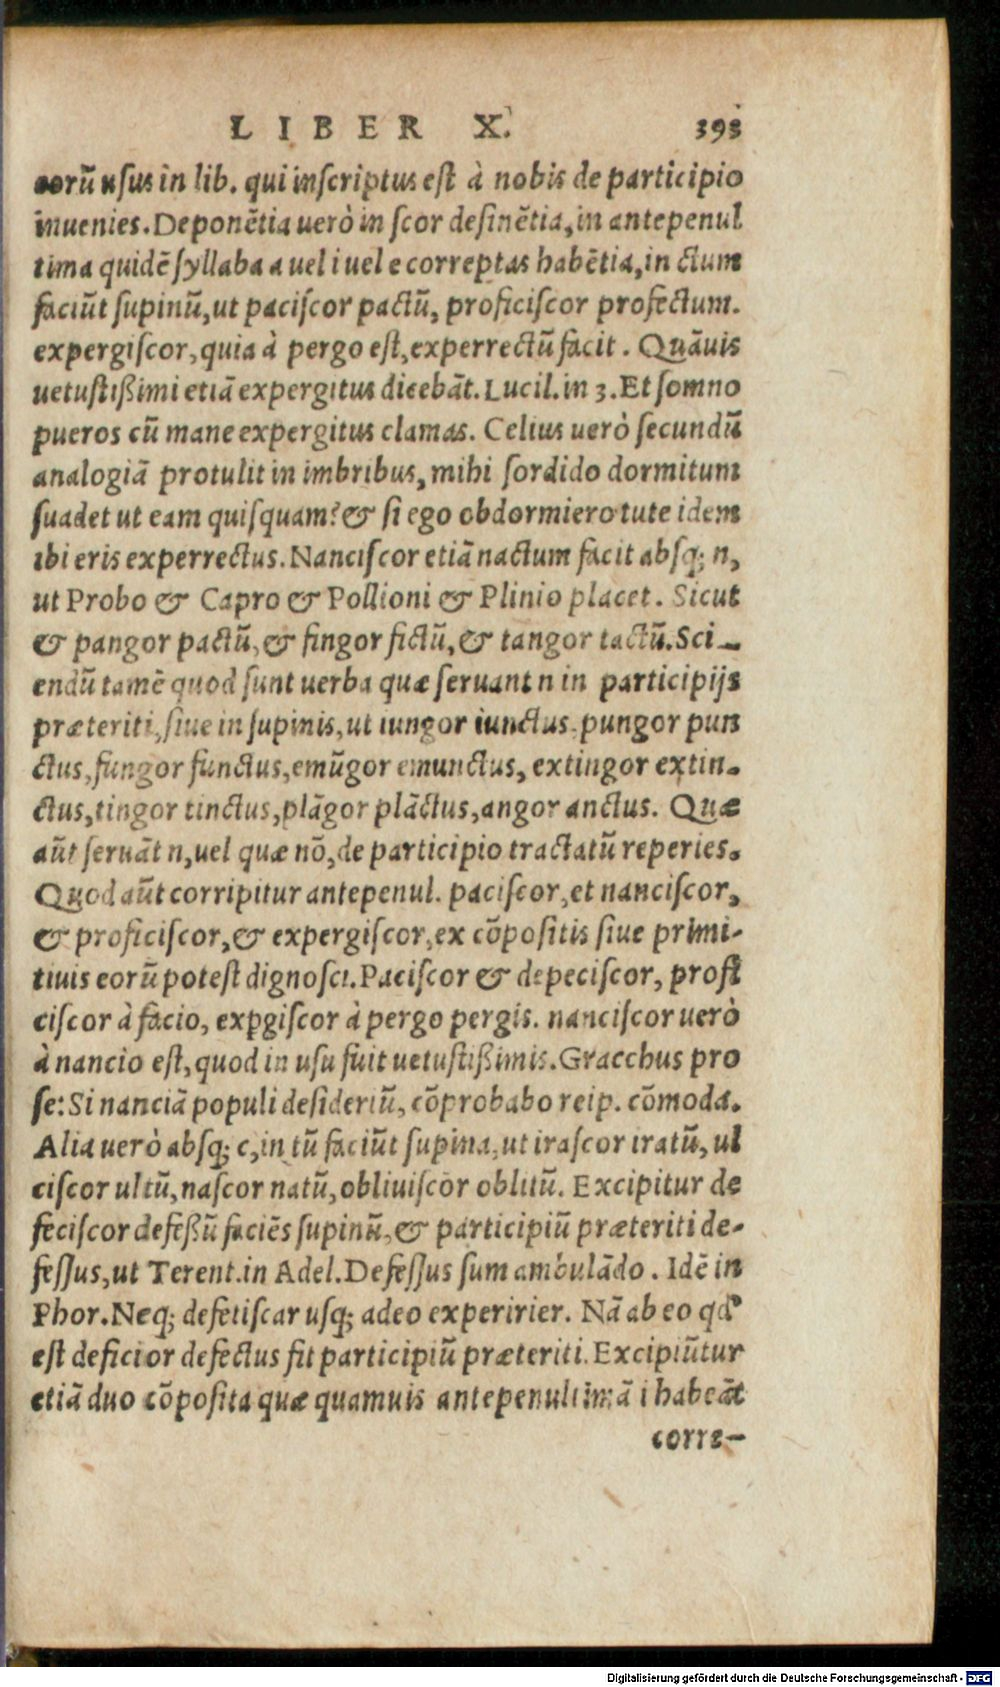 LIBER X. 393
eorũ usus in lib. qui inscriptus est à nobis de participio
inuenies. Deponẽtia uerò in scor desinẽtia, in antepenul
tima quidẽ syllaba a uel i uel e correptas habẽtia, in ctum
faciũt supinũ, ut paciscor pactũ, proficiscor profectum.
expergiscor, quia à pergo est, experrectũ facit. Quãuis
uetustißimi etiã expergitus dicebãt. Lucil. in 3. Et somno
pueros cũ mane expergitus clamas. Celius uerò secundũ
analogiã protulit in imbribus, mihi sordido dormitum
suadet ut eam quisquam? & si ego obdormiero tute idem
ibi eris experrectus. Nanciscor etiã nactum facit absq; n,
ut Probo & Capro & Pollioni & Plinio placet. Sicut
& pangor pactũ, & fingor fictũ, & tangor tactũ. Sci-
endũ tamẽ quod sunt uerba quæ seruant n in participijs
præteriti, siue in supinis, ut iungor iunctus, pungor pun
ctus, fungor functus, emũgor emunctus, extingor extin-
ctus, tingor tinctus, plãgor plãctus, angor anctus. Quæ
aũt seruãt n, uel quæ nõ, de participio tractatũ reperies.
Quod aũt corripitur antepenul. paciscor, et nanciscor,
& proficiscor, & expergiscor, ex cõpositis siue primi-
tiuis eorũ potest dignosci. Paciscor & depeciscor, profi
ciscor à facio, exp̱giscor à pergo pergis. nanciscor uerò
à nancio est, quod in usu fuit uetustißimis. Gracchus pro
se: Si nanciã populi desideriũ, cõprobabo reip. cõmoda.
Alia uerò absq; c, in tũ faciũt supina, ut irascor iratũ, ul
ciscor ultũ, nascor natũ, obliuiscor oblitũ. Excipitur de
feciscor defeßũ faciẽs supinũ, & participiũ præteriti de-
fessus, ut Terent. in Adel. Defessus sum ambulãdo. Idẽ in
Phor. Neq; defetiscar usq; adeo experirier. Nã ab eo qď
est deficior defectus fit participiũ præteriti. Excipiũtur
etiã duo cõposita quæ quamuis antepenultimã i habeãt
corre-
Digitalisierung gefördert durch die Deutsche Forschungsgemeinschaft - DFG